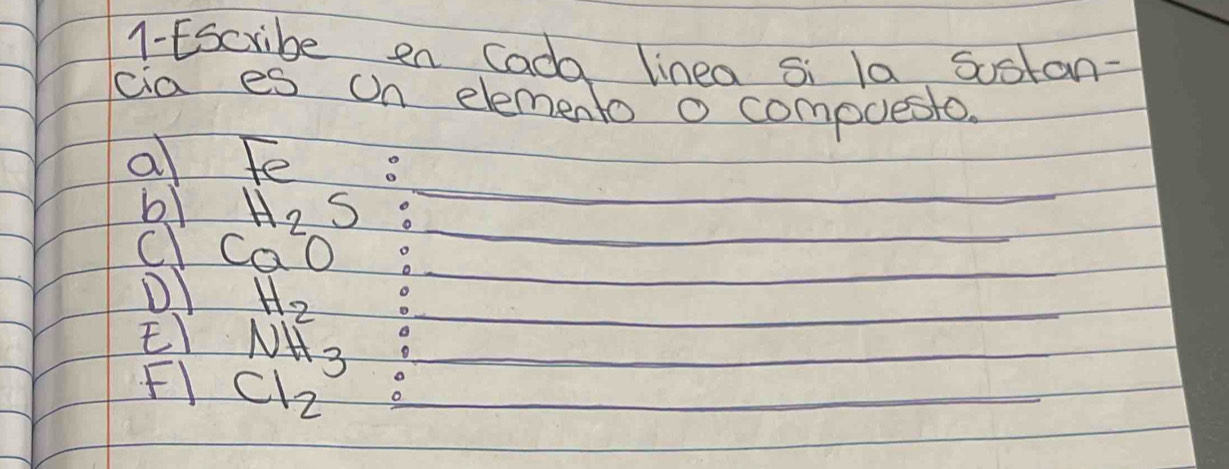 1-Escribe en cada linea si la sustan-
cia es un elemento o compuesto.
a) Fe :
b) H₂S :
C) CaO :
D) H₂ :
E) NH₃ :
F) Cl₂ :